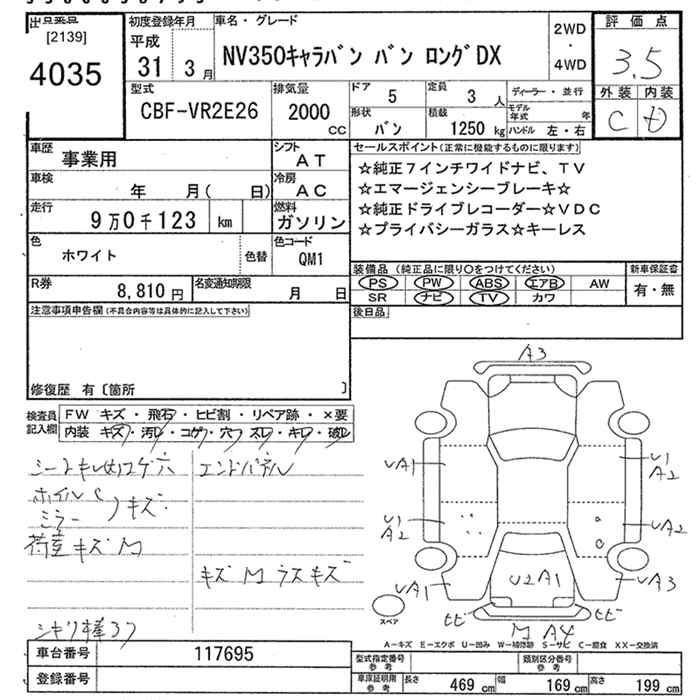 [2139]
4035
初度登録年月
平成
31 3月
車名・グレード
NV350キャラバン バン ロングDX
2WD
・
4WD
評価点
3.5
外装 内装
C D
型式
CBF-VR2E26
排気量
2000
cc
ドア 5
定員 3人
ディーラー・並行
形状 バン
積載 1250 kg
モデル年式 年
ハンドル 左・右
車歴 事業用
シフト AT
車検 年 月( 日)
冷房 AC
走行 9万0千123 km
燃料 ガソリン
色 ホワイト
色替
色コード QM1
R券 8,810 円
名変通知期限 月 日
セールスポイント(正常に機能するものに限ります)
☆純正7インチワイドナビ、TV
☆エマージェンシーブレーキ☆
☆純正ドライブレコーダー☆VDC
☆プライバシーガラス☆キーレス
装備品 (純正品に限り○をつけてください)
PS PW ABS エアB AW
SR ナビ TV カワ
新車保証書
有・無
後日品
注意事項申告欄(不具合内容等は具体的に記入して下さい)
修復歴 有〔箇所 〕
検査員記入欄
FW キズ・飛石・ヒビ割・リペア跡・×要
内装 キズ・汚レ・コゲ・穴・スレ・キレ・破レ
エンドパネル
ホイル
ミラー
キズ
荷室キズM
キズ M ラスキズ
A3
UA1
U1
A2
U1
A2
UA2
UA1
UA3
U2A1
ヒビ
ヒビ
M A4
スペア
A-キズ E-エクボ U-凹み W-補修跡 S-サビ C-腐食 XX-交換済
車台番号 117695
登録番号
型式指定番号
参考
類別区分番号
参考
車庫証明用
参考
長さ 469 cm
幅 169 cm
高さ 199 cm